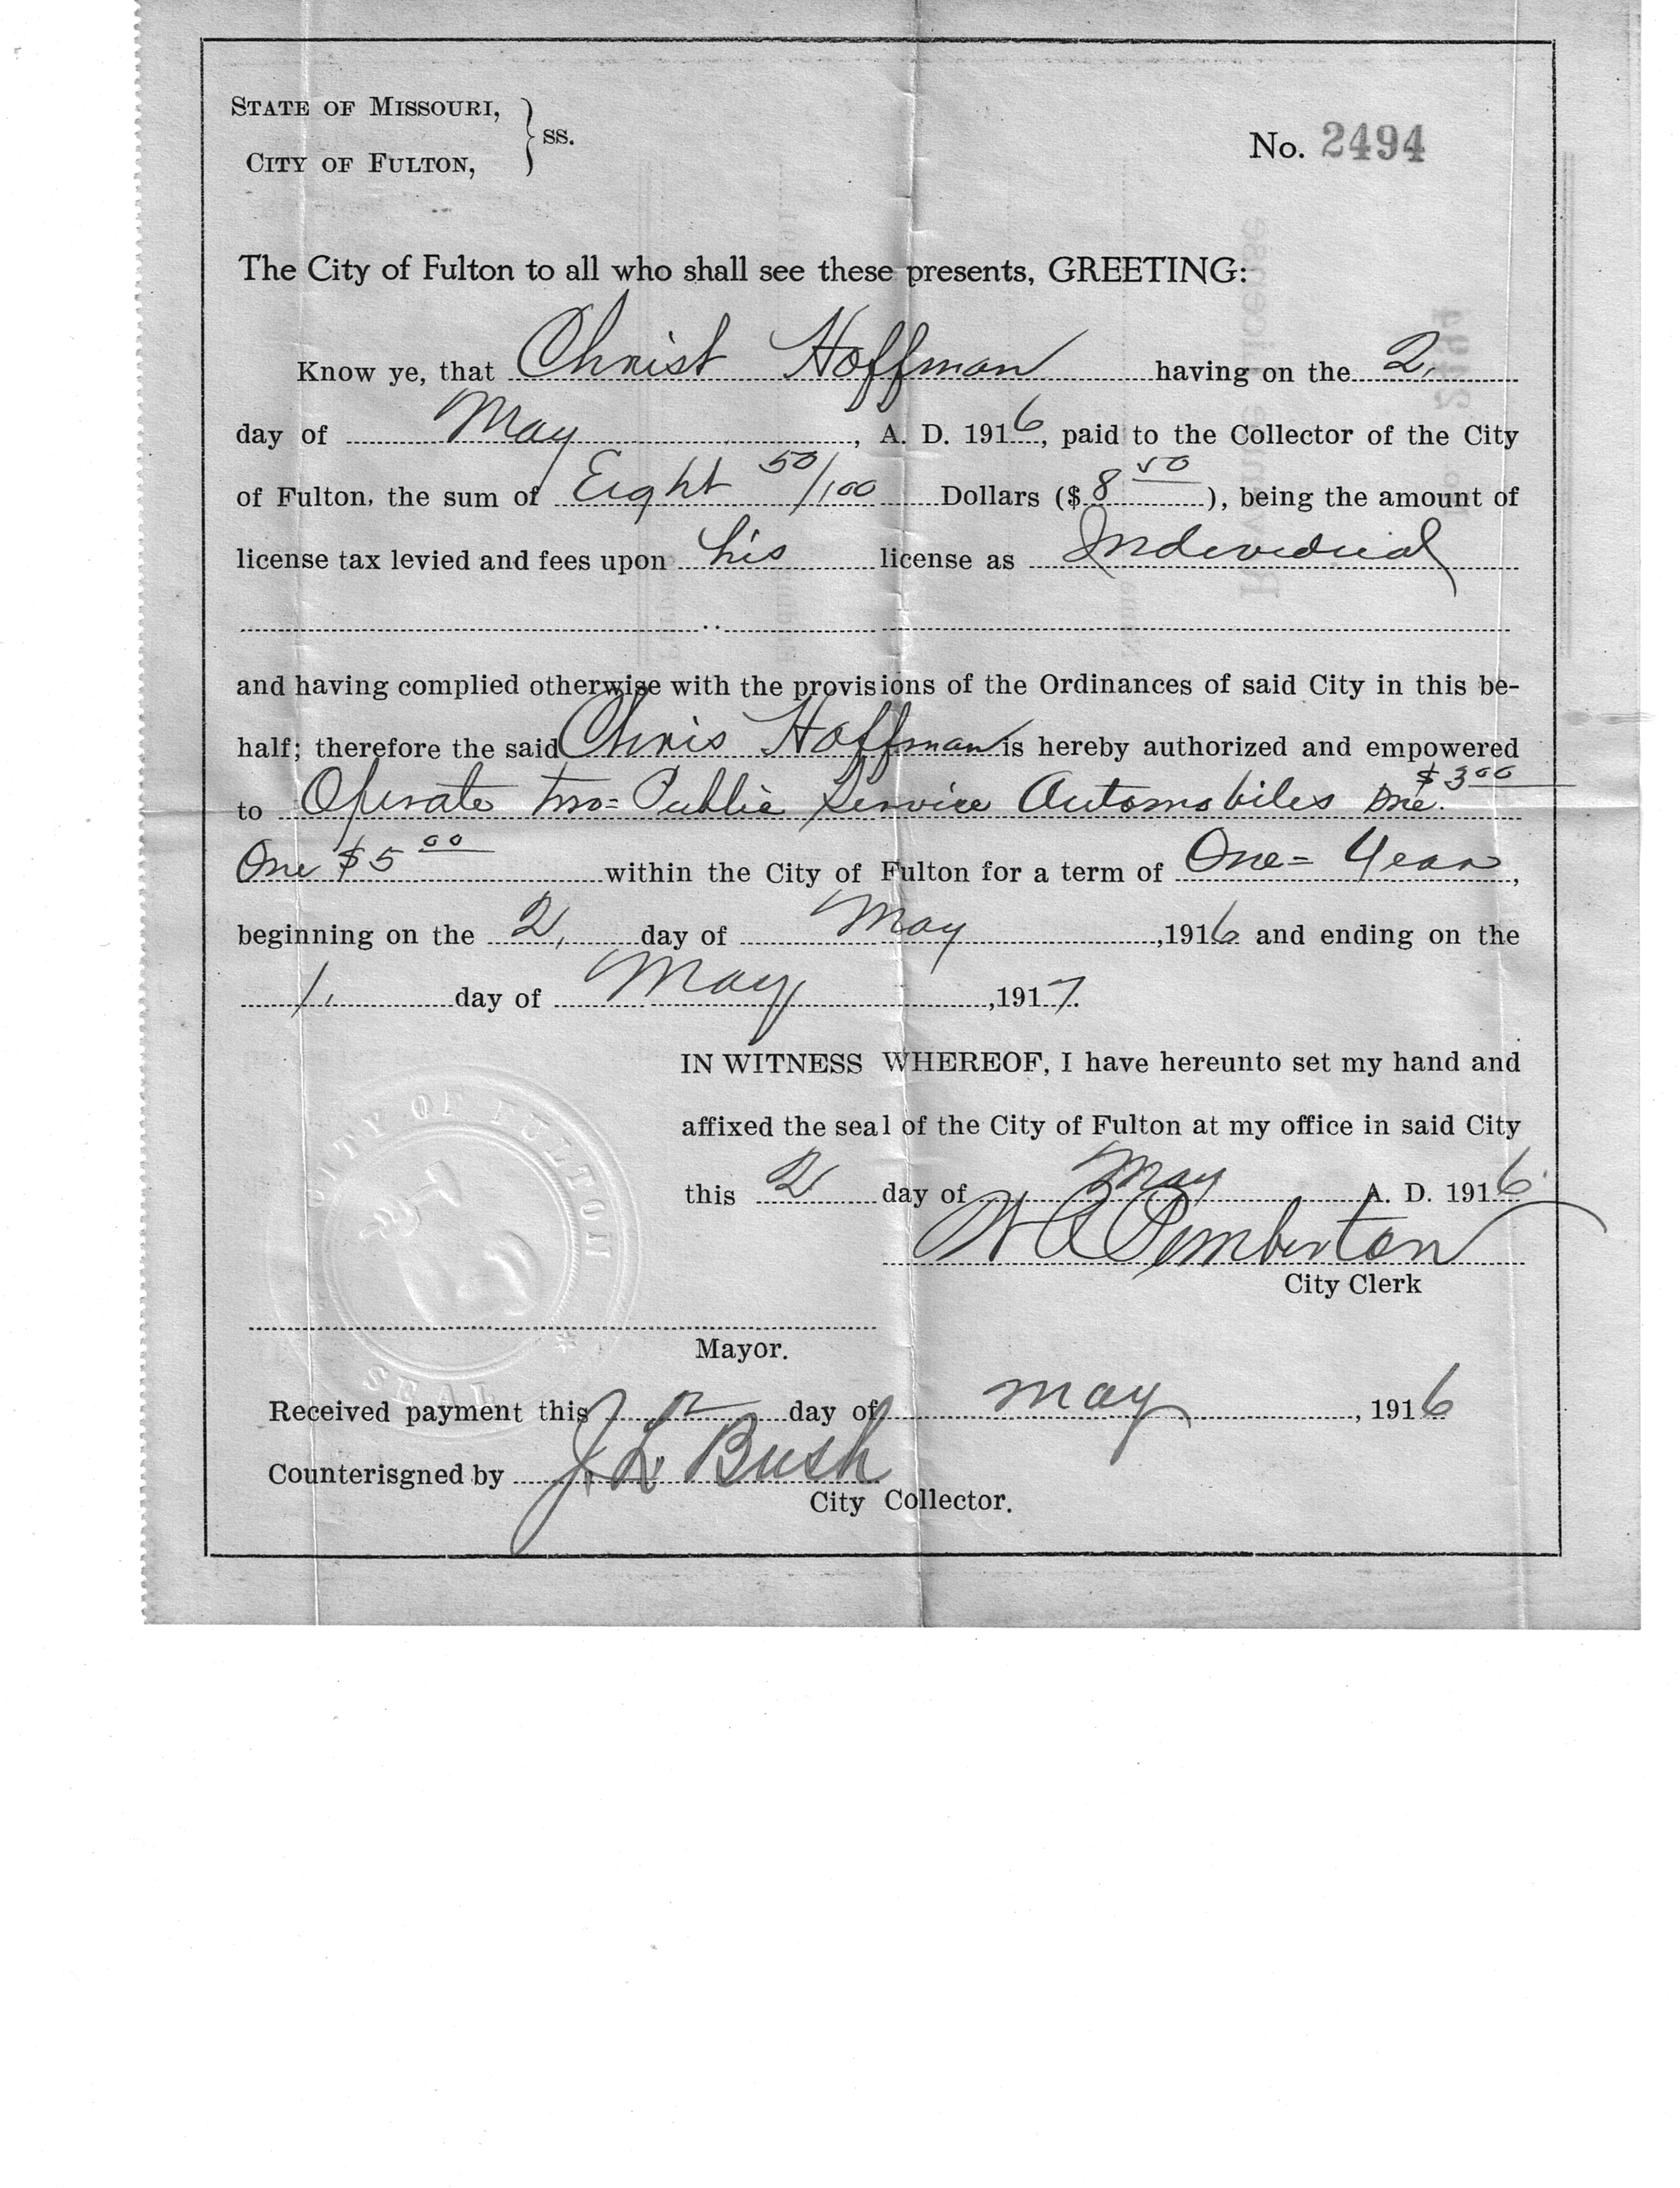 STATE OF MISSOURI,
CITY OF FULTON, } ss.
No. 2494
The City of Fulton to all who shall see these presents, GREETING:
Know ye, that Christ Hoffman having on the 2,
day of May, A. D. 1916, paid to the Collector of the City
of Fulton, the sum of Eight 50/100 Dollars ($ 8 50), being the amount of
license tax levied and fees upon his license as Individual
and having complied otherwise with the provisions of the Ordinances of said City in this be-
half; therefore the said Chris Hoffman is hereby authorized and empowered
to Operate two= Public Service Automobiles One. $3 00
One $5 00 within the City of Fulton for a term of One= Year,
beginning on the 2, day of May, 1916 and ending on the
1, day of May, 1917.
IN WITNESS WHEREOF, I have hereunto set my hand and
affixed the seal of the City of Fulton at my office in said City
this 2 day of May A. D. 1916
W C Pemberton
City Clerk
CITY OF FULTON
SEAL
Mayor.
Received payment this 2 day of May, 1916
Counterisgned by J. L. Bush
City Collector.